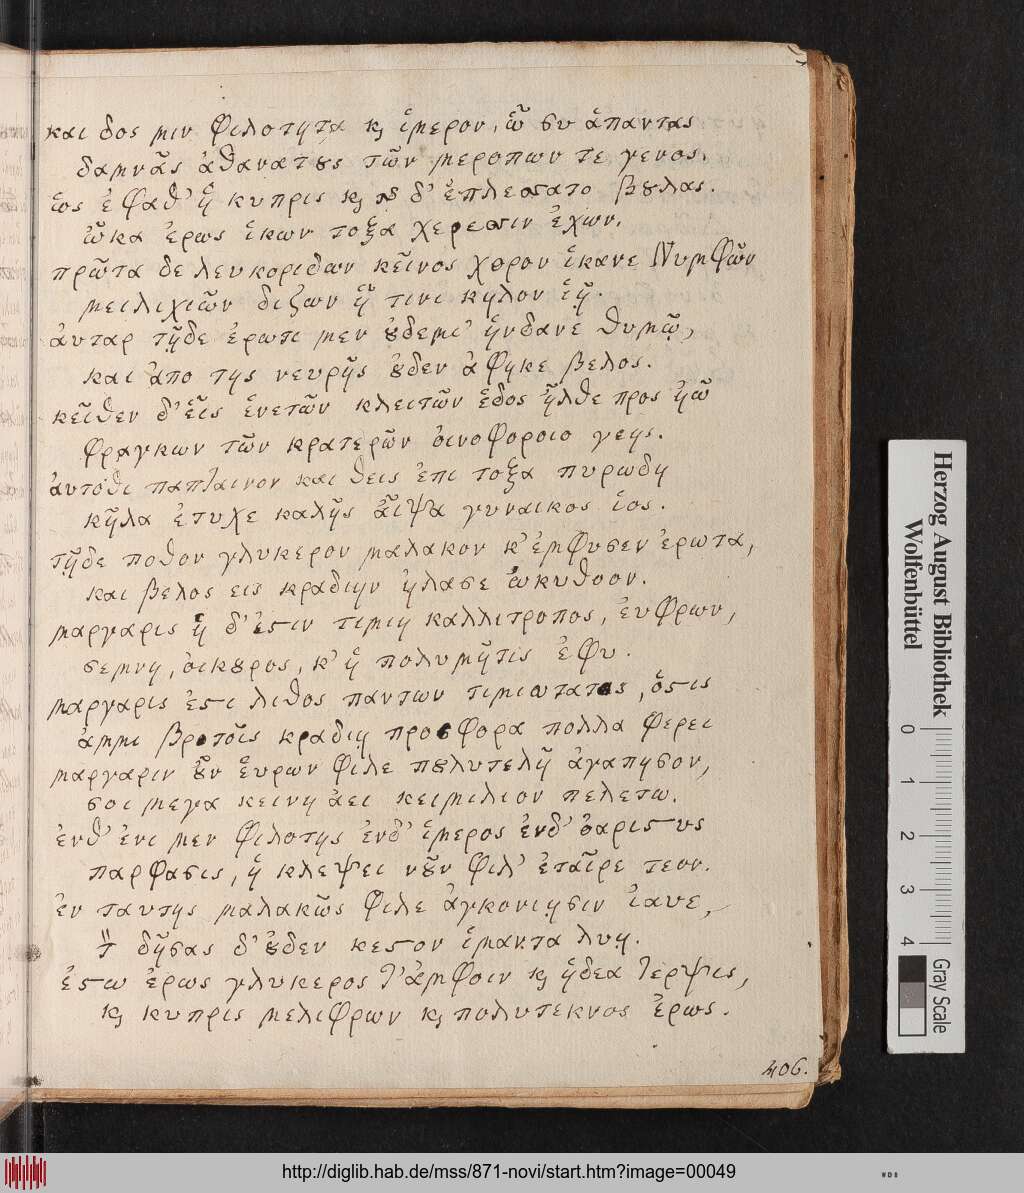 και δος μιν φιλοτητα κ̧ ἱμερον, ᾧ συ ἁπαντας
δαμνᾶς ἀθανατȣς τῶν μεροπων τε γενος.
ὥς ἐφαθ' ἡ κυπρις κ̧ ȣ δ' ἐπλεσατο βȣλας.
ὦκα ἐρως ἱκων τοξα χερεσιν ἐχων.
πρῶτα δε λευκοριδων κεῖνος χορον ἱκανε Νυμφῶν
μειλιχιῶν διζων ᾗ τινι κηλον ἱῇ.
ἀυταρ τῇδε ἐρωτι μεν ȣδεμι' ἡνδανε θυμῷ,
και ἀπο της νευρῆς ȣδεν ἀφηκε βελος.
κεῖθεν δ' εἷς ἑνετῶν κλειτῶν ἑδος ἦλθε προς ἠῶ
φραγκων των κρατερῶν ὀινοφοροιο γεης.
ἀυτοθι παπταινον και θεις ἐπι τοξα πυρωδη
κῆλα ἐτυχε καλῆς ἆιψα γυναικος ἰος.
τῇδε ποθον γλυκερον μαλακον κ' ἐμφυσεν ἐρωτα,
και βελος εις κραδιην ἠλασε ὠκυθοον.
μαργαρις ἡ δ' ἐϛιν τιμιη καλλιτροπος, ἐυφρων,
σεμνη, ὀικȣρος, κ' ἡ πολυμῆτις ἐφυ.
μαργαρις ἐϛι λιθος παντων τιμιωτατος, ὁϛις
ἀμμι βροτοῖς κραδιῃ προσφορα πολλα φερει
μαργαριν ȣν ἑυρων φιλε πȣλυτελῆ ἀγαπησον,
σοι μεγα κεινη ἀει κειμιλιον πελετω.
ἐνθ' ἐνι μεν φιλοτης ἐνδ' ἱμερος ἐνδ' ὀαριϛυς
παρφασις, ἡ κλεψει νȣν φιλ' ἑταῖρε τεον.
ἐν ταυτης μαλακῶς φιλε ἀγκονιῃσιν ἰαυε,
δῆσας δ' ȣδεν κεϛον ἱμαντα λυῃ.
ἐϛω ἐρως γλυκερος τ' ἀμφοιν κ̧ ἡδεα τερψις,
κ̧ κυπρις μελιφρων κ̧ πολυτεκνος ἐρως.
406.
Herzog August Bibliothek
Wolfenbüttel
0 1 2 3 4
Gray Scale
http://diglib.hab.de/mss/871-novi/start.htm?image=00049
WDB